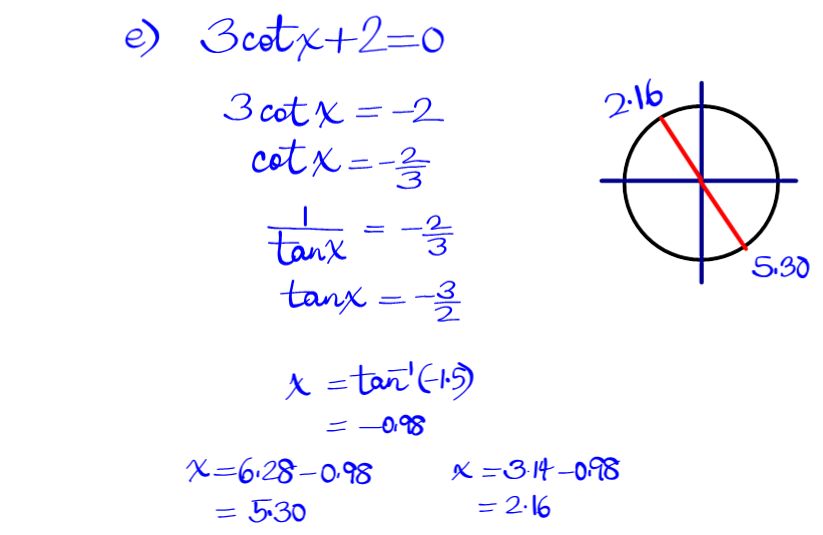 e) 3cotx+2=0
3cotx = -2
cotx = -2/3
1/tanx = -2/3
tanx = -3/2
x = tan⁻¹(-1.5)
= -0.98
x=6.28-0.98
= 5.30
x=3.14-0.98
= 2.16
2.16
5.30